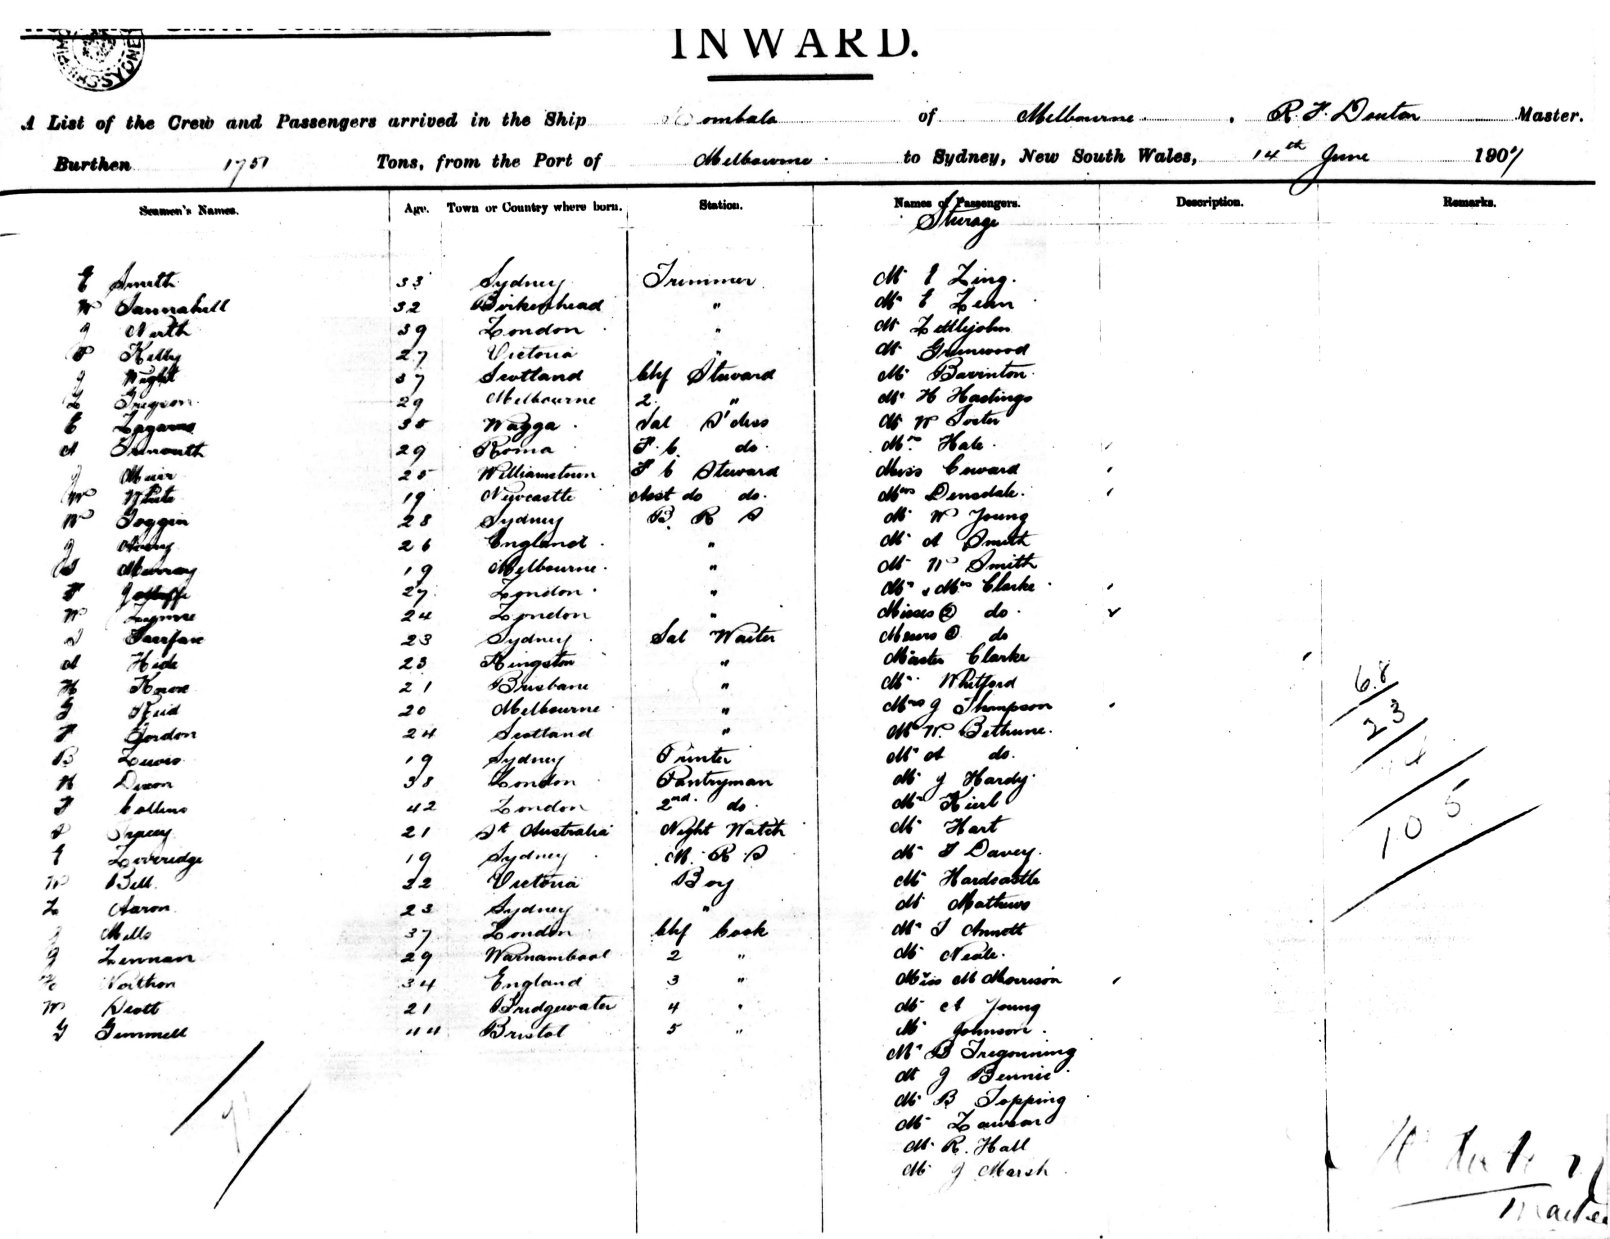 INWARD.
A List of the Crew and Passengers arrived in the Ship Bombala of Melbourne, R. F. Denton Master.
Burthen 1751 Tons, from the Port of Melbourne to Sydney, New South Wales, 14th June 1907
Seamen's Names. Age. Town or Country where born. Station. Names of Passengers. Description. Remarks.
Sturage
E Smith 33 Sydney Trimmer Mr E Ling.
W Tannahill 32 Birkenhead " Mr E Lean
J Nerth 39 London " Mr Littlejohn
P Kelly 27 Victoria " Mr Greenwood
J Wight 37 Scotland Chf Steward Mr Bavinton
L Gregson 29 Melbourne 2 " Mr H Hastings
E 30 Wagga Sal S'dess Mr W Foster
A 29 Roma F.C. do. Mrs Hale
J Muir 25 Williamstown F C Steward Miss Coward
W White 19 Newcastle Asst do do. Mrs Densdale.
W Goggin 28 Sydney B. R S Mr W Young
J Avery 26 England " Mr A Smith
Murray 19 Melbourne " Mr W Smith
F 27 London " Mr & Mrs Clarke
W Lynne 24 London " Misses 2 do.
Fairfax 23 Sydney Sal Waiter Messrs 2 do
A Hide 23 Kingston " Master Clarke
H Knox 21 Brisbane " Mr Whitford
G Reid 20 Melbourne " Mrs J Thompson
F Gordon 24 Scotland " Mr W. Bethune.
B Lewis 19 Sydney Printer Mr A do.
H Dixon 38 London Pantryman Mr J Hardy.
F Collins 42 London 2nd do. Mr Kierl
Tracey 21 St Australia Night Watch Mr Hart
E Loveridge 19 Sydney M. R S Mr F Davey.
W Bell 22 Victoria Boy Mr Hardcastle
L Aaron 23 Sydney " Mr Mathews
J Mills 37 London Chf Cook Mr T Annott
J Lennan 29 Warnambool 2 " Mr Neale.
Northon 34 England 3 " Miss M Morrison
W Scott 21 Bridgewater 4 " Mr A Young
G Gemmell 44 Bristol 5 " Mr Johnson.
Mr B Tregonning
Mr J Bennie
Mr B Topping
Mr Lawson
Mr R. Hall
Mr J Marsh
68
23
14
105